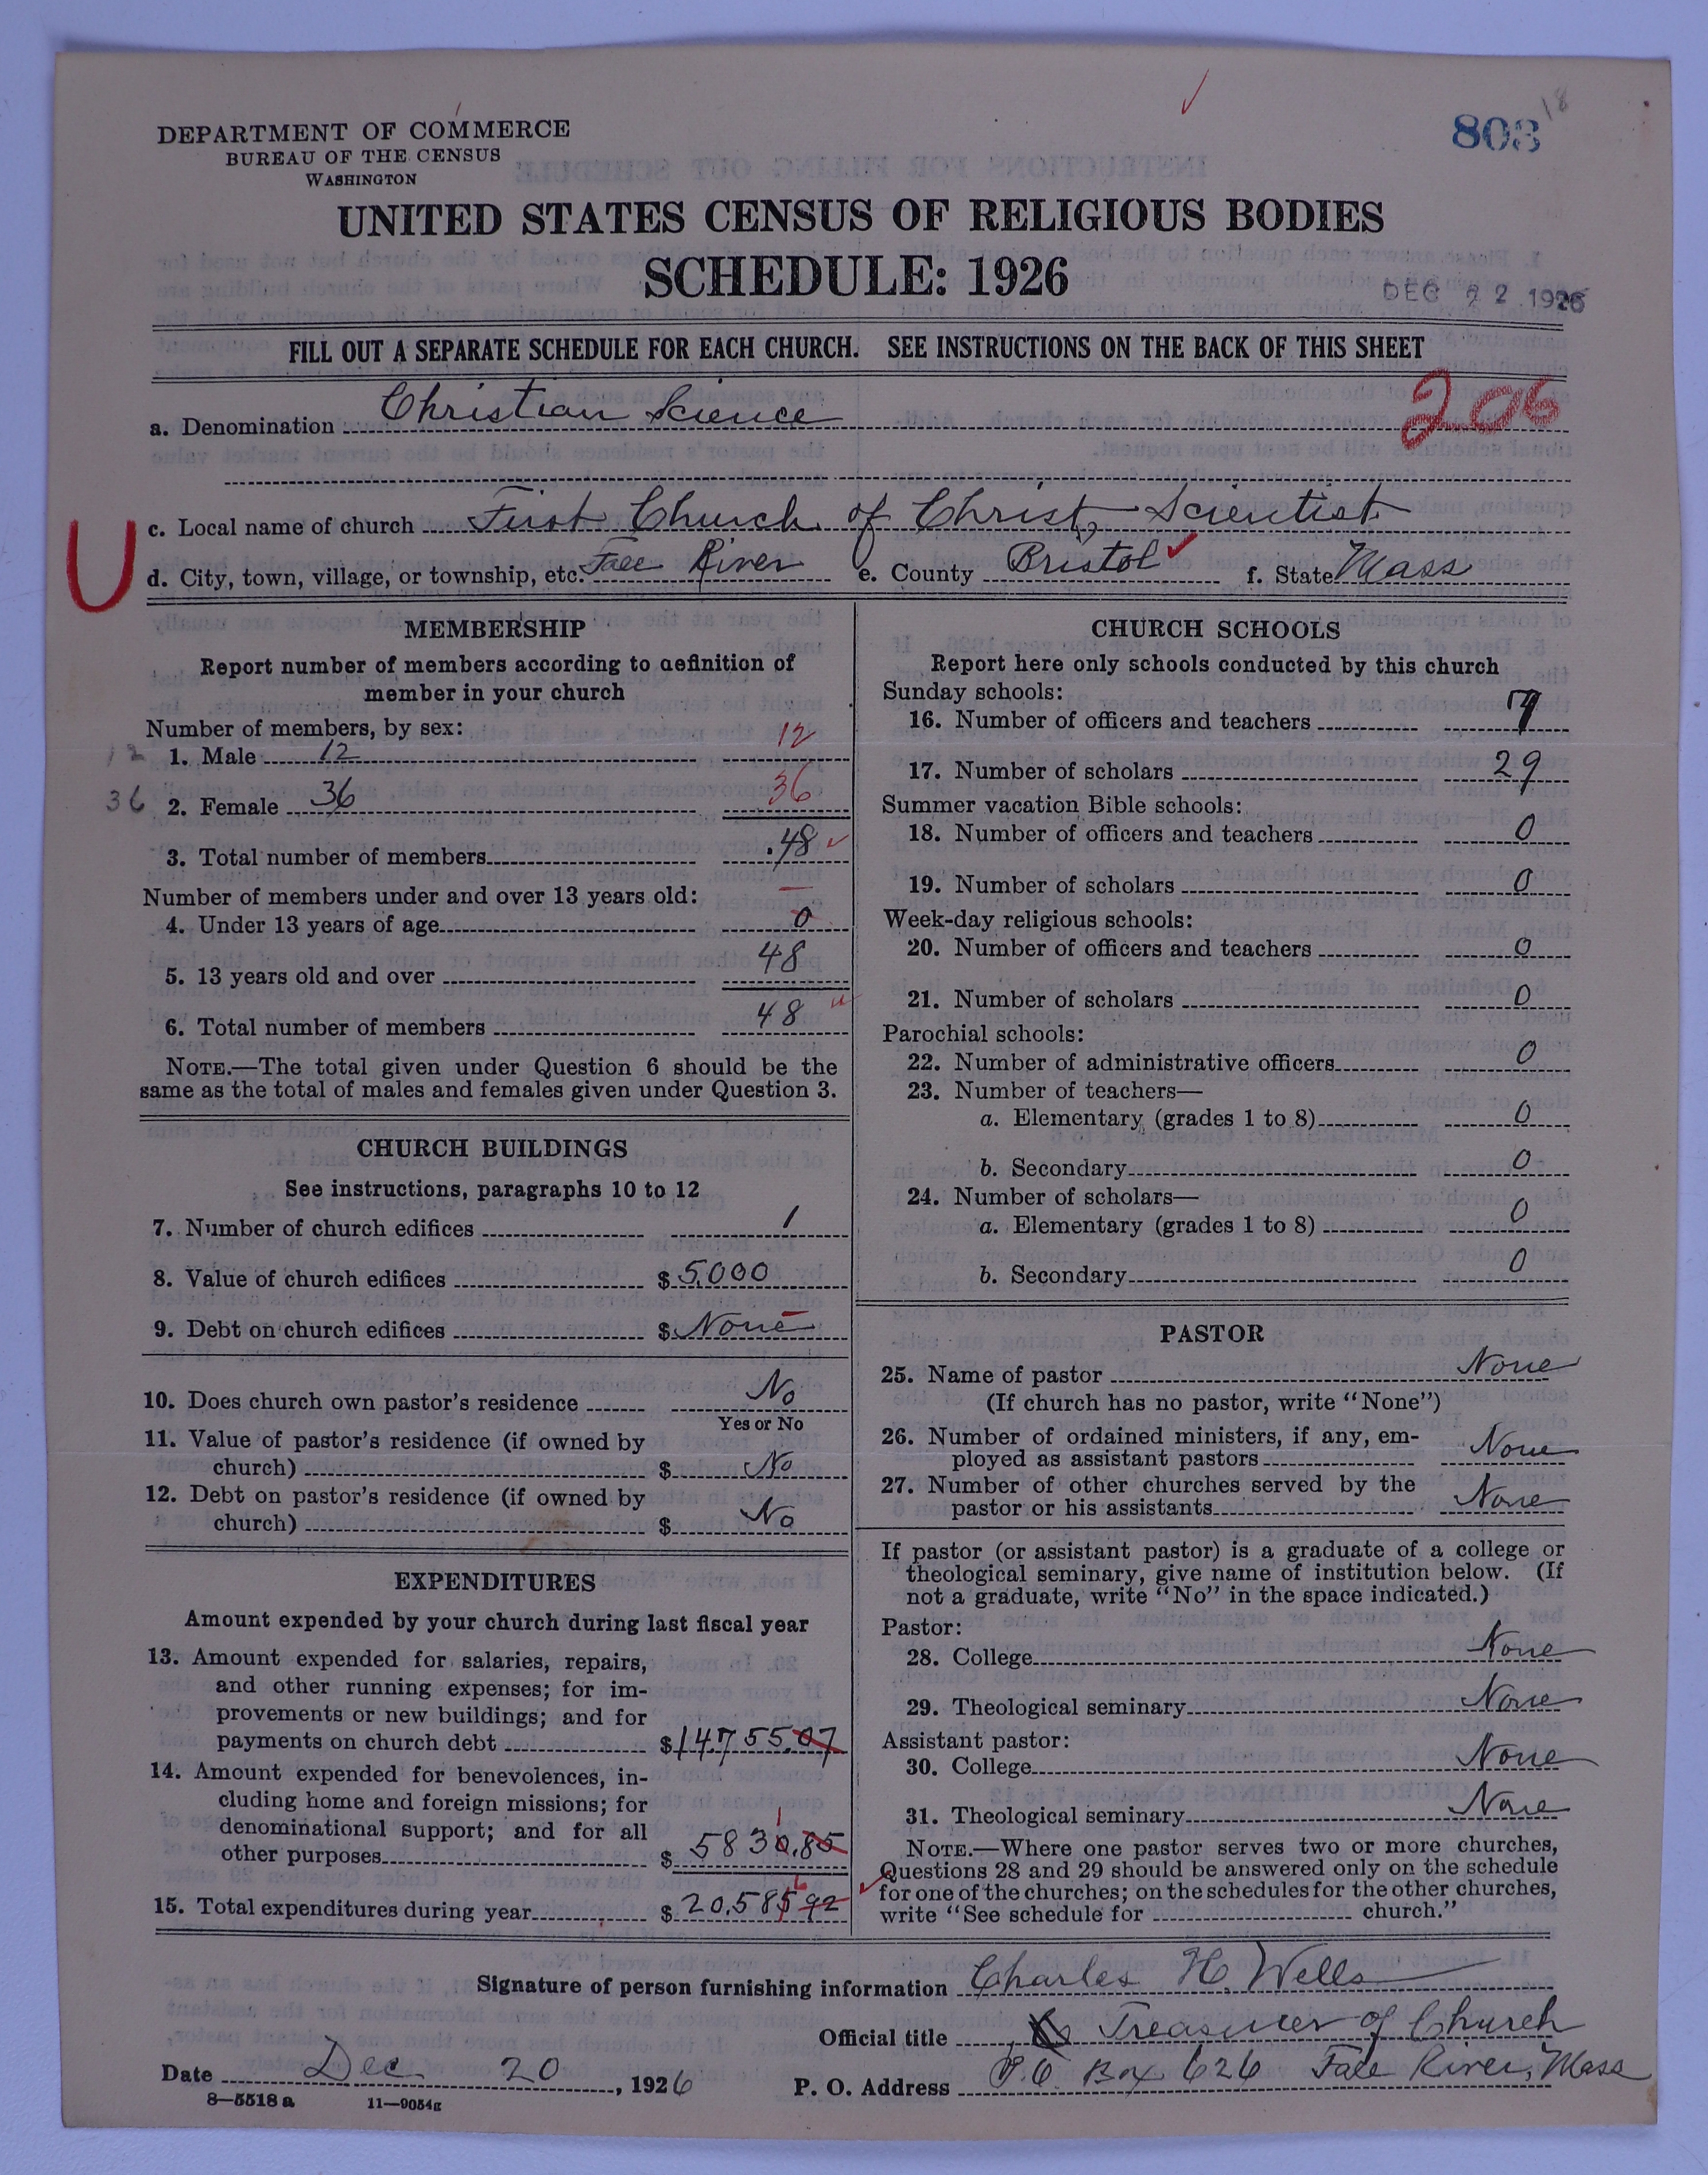 803
18
DEPARTMENT OF COMMERCE
BUREAU OF THE CENSUS
WASHINGTON
UNITED STATES CENSUS OF RELIGIOUS BODIES
SCHEDULE: 1926
DEC 22 1926
FILL OUT A SEPARATE SCHEDULE FOR EACH CHURCH. SEE INSTRUCTIONS ON THE BACK OF THIS SHEET
206
a. Denomination Christian Science
U
c. Local name of church First Church of Christ, Scientist
d. City, town, village, or township, etc. Fall River e. County Bristol f. State Mass
MEMBERSHIP
Report number of members according to definition of
member in your church
Number of members, by sex:
12 1. Male 12 12
36 2. Female 36 36
3. Total number of members 48
Number of members under and over 13 years old:
4. Under 13 years of age 0
5. 13 years old and over 48
6. Total number of members 48
NOTE.—The total given under Question 6 should be the
same as the total of males and females given under Question 3.
CHURCH BUILDINGS
See instructions, paragraphs 10 to 12
7. Number of church edifices 1
8. Value of church edifices $ 5,000
9. Debt on church edifices $ None
10. Does church own pastor's residence No
Yes or No
11. Value of pastor's residence (if owned by
church) $ No
12. Debt on pastor's residence (if owned by
church) $ No
EXPENDITURES
Amount expended by your church during last fiscal year
13. Amount expended for salaries, repairs,
and other running expenses; for im-
provements or new buildings; and for
payments on church debt $ 14,755.07
14. Amount expended for benevolences, in-
cluding home and foreign missions; for
denominational support; and for all 1
other purposes $ 5830.85
6
15. Total expenditures during year $ 20,585 92
CHURCH SCHOOLS
Report here only schools conducted by this church
Sunday schools:
16. Number of officers and teachers 7
17. Number of scholars 29
Summer vacation Bible schools:
18. Number of officers and teachers 0
19. Number of scholars 0
Week-day religious schools:
20. Number of officers and teachers 0
21. Number of scholars 0
Parochial schools:
22. Number of administrative officers 0
23. Number of teachers—
a. Elementary (grades 1 to 8) 0
b. Secondary 0
24. Number of scholars—
a. Elementary (grades 1 to 8) 0
b. Secondary 0
PASTOR
25. Name of pastor None
(If church has no pastor, write "None")
26. Number of ordained ministers, if any, em-
ployed as assistant pastors None
27. Number of other churches served by the
pastor or his assistants None
If pastor (or assistant pastor) is a graduate of a college or
theological seminary, give name of institution below. (If
not a graduate, write "No" in the space indicated.)
Pastor:
28. College None
29. Theological seminary None
Assistant pastor:
30. College None
31. Theological seminary None
NOTE.—Where one pastor serves two or more churches,
Questions 28 and 29 should be answered only on the schedule
for one of the churches; on the schedules for the other churches,
write "See schedule for church."
Signature of person furnishing information Charles H. Wells
Official title Treasurer of Church
Date Dec 20, 1926 P. O. Address P.O. Box 626 Fall River, Mass
8—5518 a 11—9054g